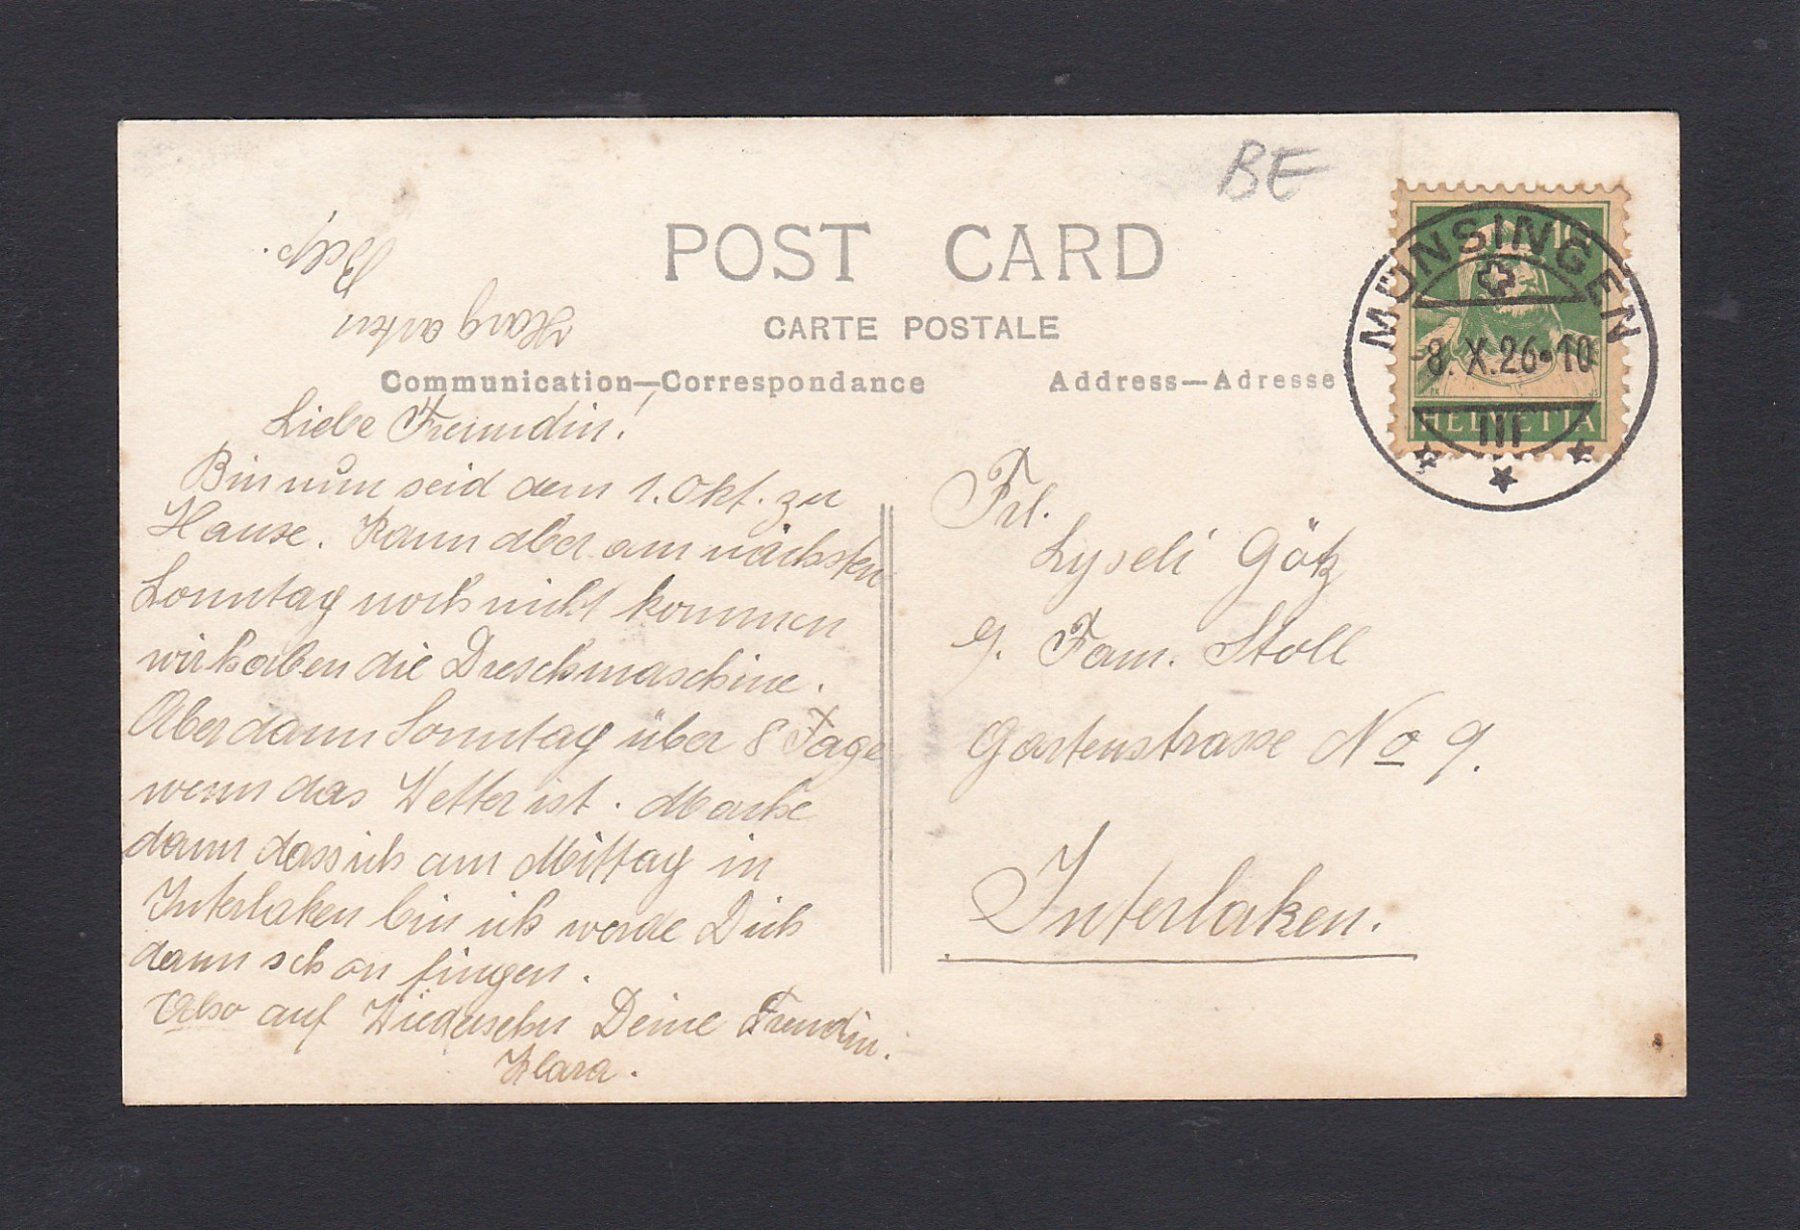 BE
POST CARD
CARTE POSTALE
Communication—Correspondance
Address—Adresse
MÜNSINGEN
-8. X.26-10
III
HELVETIA
Belp.
Liebe Freundin!
Bin nun seid dem 1. Okt. zu
Hause. Kann aber am nächsten
Sonntag noch nicht kommen
wir haben die Dreschmaschine.
Aber dann Sonntag über 8 Tage
wenn das Wetter ist. Mache
dann dass ich am Mittag in
Interlaken bin ich werde Dich
dann schon fingen.
Also auf Wiedersehn Deine Freundin.
Klara.
Frl.
Lyseli Götz
Fam. Stoll
Gartenstrasse No 9.
Interlaken.